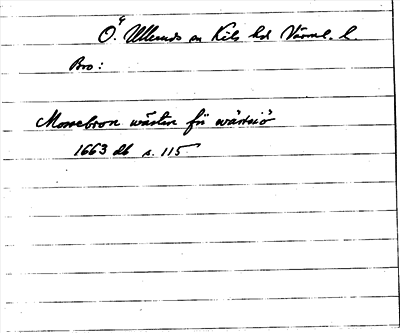 Ö. Ulleruds sn Kils hd Värml. l.
Bro:
Mossebron wästen för wärtsiö
1663 db s. 115